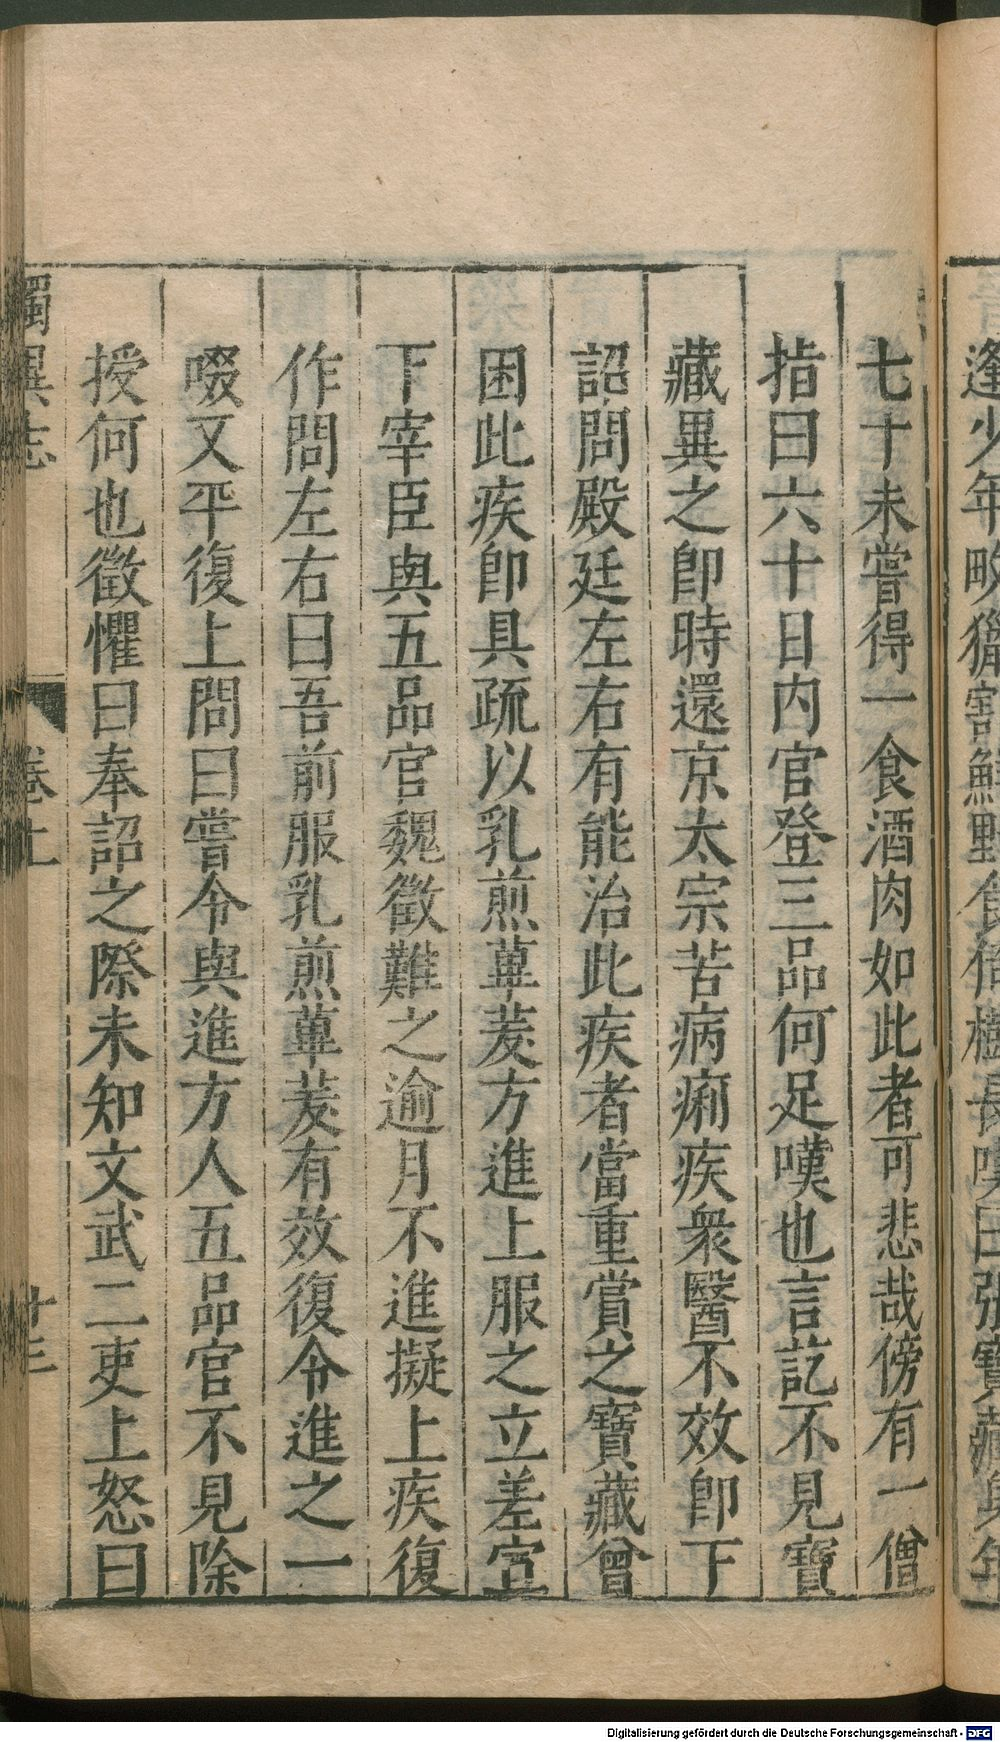 逢少年畋獵割鮮野食倚樹長嘆曰張寶藏身年
七十未嘗得一食酒肉如此者可悲哉傍有一僧
指曰六十日内官登三品何足嘆也言訖不見寶
藏異之即時還京太宗苦病痢疾衆醫不效即下
詔問殿廷左右有能治此疾者當重賞之寶藏曾
困此疾即具疏以乳煎蓽茇方進上服之立差宣
下宰臣與五品官魏徵難之逾月不進擬上疾復
作問左右曰吾前服乳煎蓽茇有效復令進之一
啜又平復上問曰嘗令與進方人五品官不見除
授何也徵懼曰奉詔之際未知文武二吏上怒曰
獨異志
卷上
十三
Digitalisierung gefördert durch die Deutsche Forschungsgemeinschaft - DFG